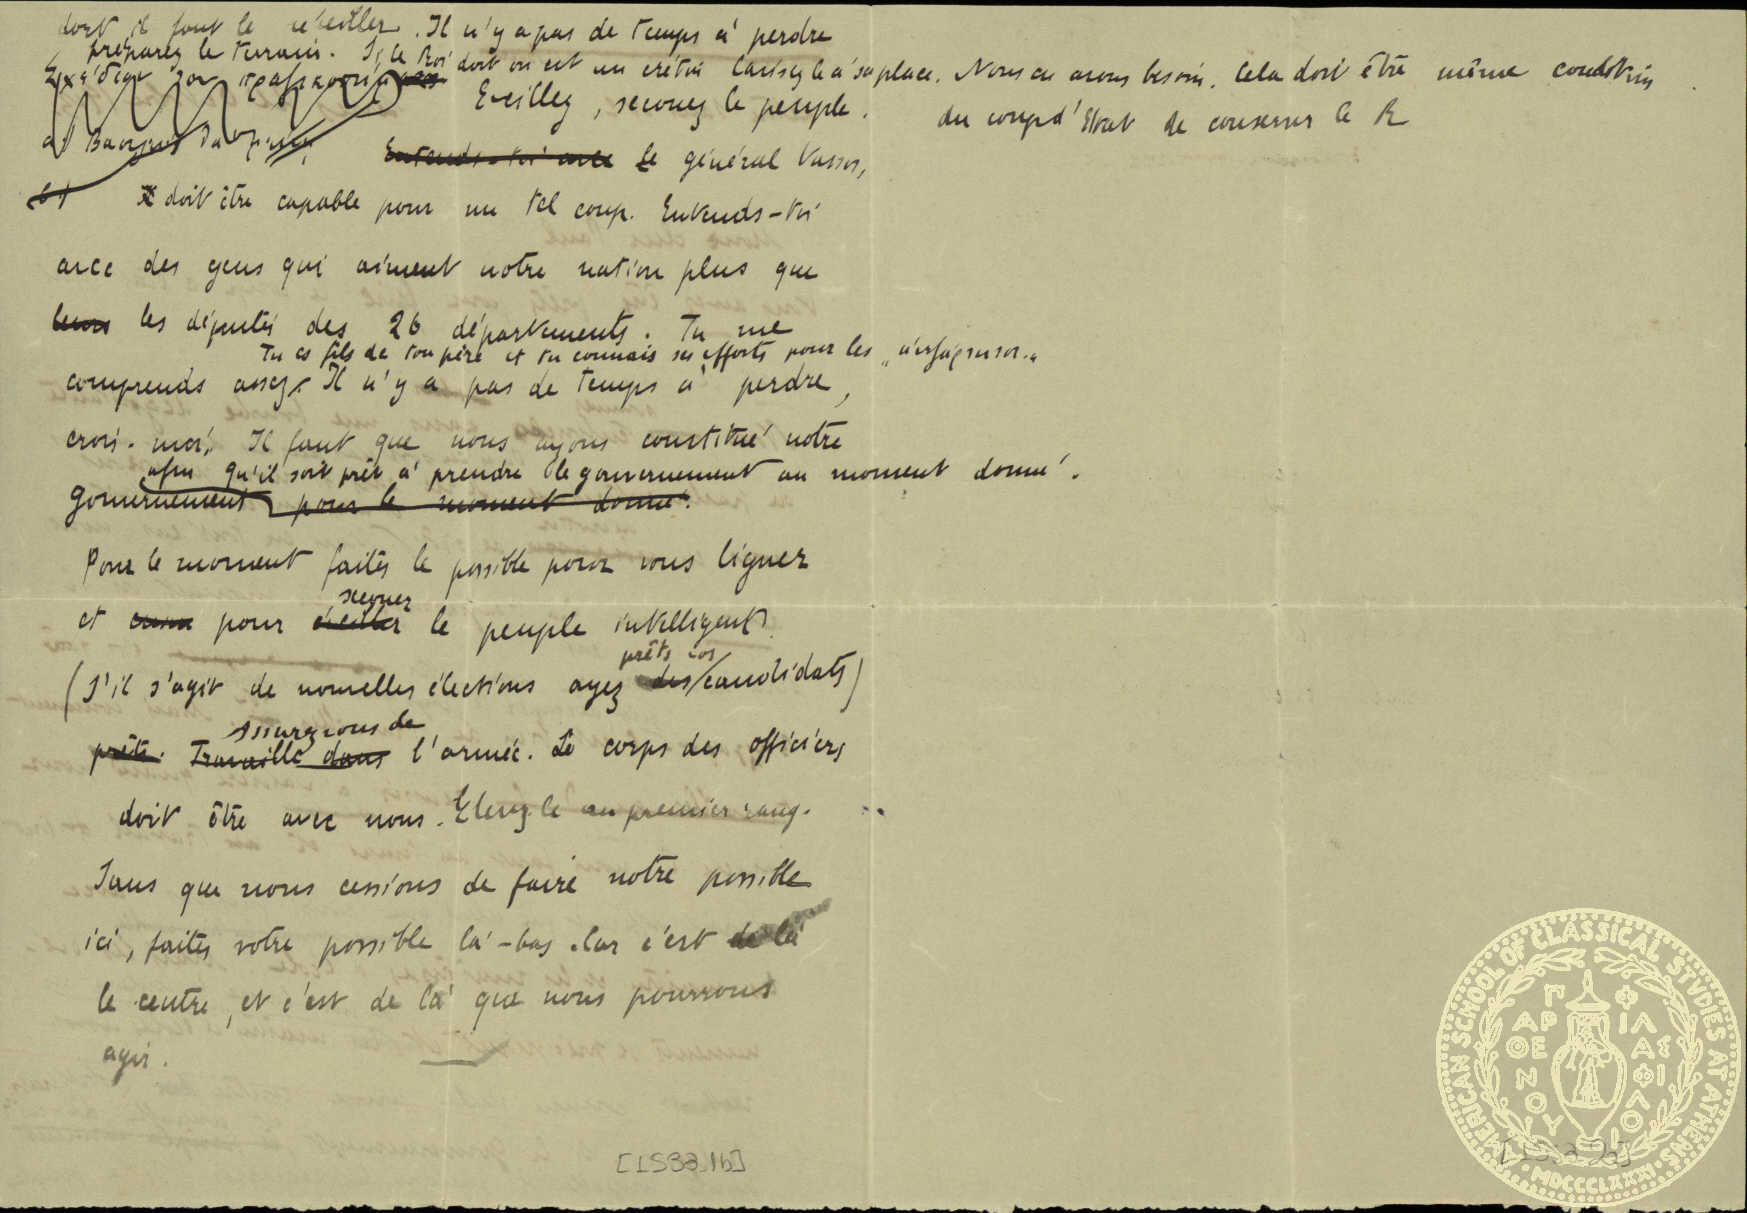 dont il faut le réveiller. Il n'y a pas de temps à perdre
préparez le terrain. Si le Roi doit on est un crétin laissez le à sa place. Nous en avons besoin. Cela doit être même condition
Σχέδιον
Eveillez, secouez le peuple. du coup d'Etat de conserver le R
Entends-toi avec le général Vassos,
doit être capable pour un tel coup. Entends-toi
avec des gens qui aiment notre nation plus que
leurs les députés des 26 départements. Tu me
Tu es fils de ton père et tu connais ses efforts pour les
comprends assez. Il n'y a pas de temps à perdre,
crois-moi. Il faut que nous ayons constitué notre
afin qu'il soit prêt à prendre le gouvernement au moment donné.
gouvernement pour le moment donné.
Pour le moment faites le possible pour vous liguer
secouer
et pour éveiller le peuple intelligent.
prêts vos
(S'il s'agit de nouvelles élections ayez des candidats)
assurez vous de
prêts. Travaille dans l'armée. Le corps des officiers
doit être avec nous. Elevez le au premier rang.
Sans que nous cessions de faire notre possible
ici, faites votre possible là-bas. Car c'est de là
le centre, et c'est de là que nous pourrons
agir.
[LS32.1b]
AMERICAN SCHOOL OF CLASSICAL STVDIES AT ATHENS · MDCCCLXXXI ·
ΠΑΡΘΕΝΟΥ ΦΙΛΑΣ ΦΙΛΟΙ